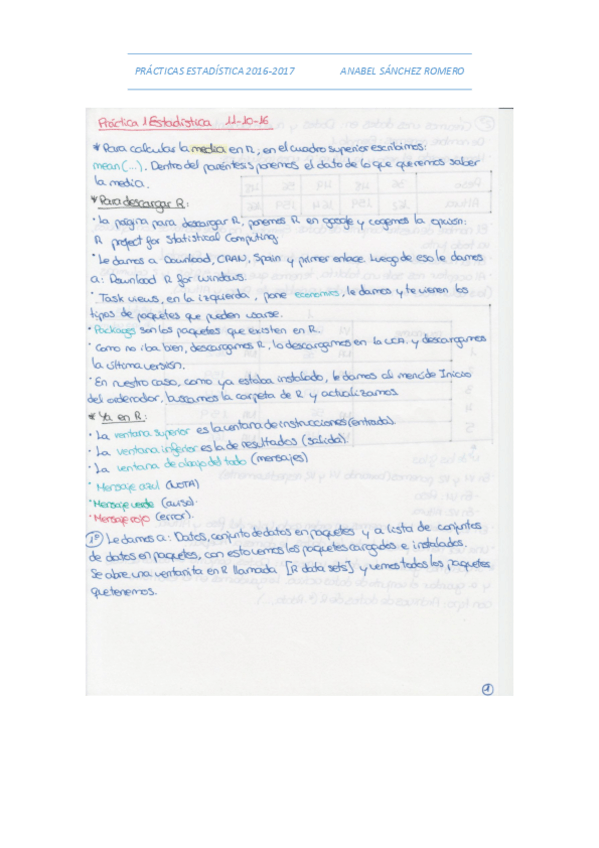 PRÁCTICAS ESTADÍSTICA 2016-2017 ANABEL SÁNCHEZ ROMERO
Práctica 1 Estadística 11-10-16
* Para calcular la media en R, en el cuadro superior escribimos:
mean(...). Dentro del paréntesis ponemos el dato de lo que queremos saber
la media.
* Para descargar R:
· La página para descargar R, ponemos R en google y cogemos la opción:
R project for Statistical Computing.
· Le damos a Download, CRAN, Spain y primer enlace. Luego de eso le damos
a: Download R for windows.
· Task views, en la izquierda, pone economics, le damos y te vienen los
tipos de paquetes que pueden usarse.
· Packages son los paquetes que existen en R.
· Como no iba bien, descargamos R, lo descargamos en la UCA. y descargamos
la última versión.
· En nuestro caso, como ya estaba instalado, le damos al menú de Inicio
del ordenador, buscamos la carpeta de R y actualizamos.
* Ya en R:
· La ventana superior es la ventana de instrucciones (entrada).
· La ventana inferior es la de resultados (salida).
· La ventana de abajo del todo (mensajes)
· Mensaje azul (NOTA)
· Mensaje verde (aviso).
· Mensaje rojo (error).
1º Le damos a: Datos, conjunto de datos en paquetes y a lista de conjuntos
de datos en paquetes, con esto vemos los paquetes cargados e instalados.
Se abre una ventanita en R llamada [R data sets] y vemos todos los paquetes
que tenemos.
1